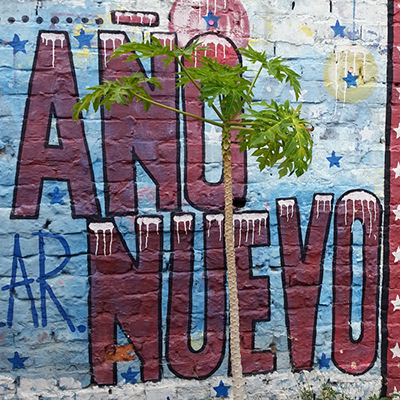 AÑO
NUEVO
AR.